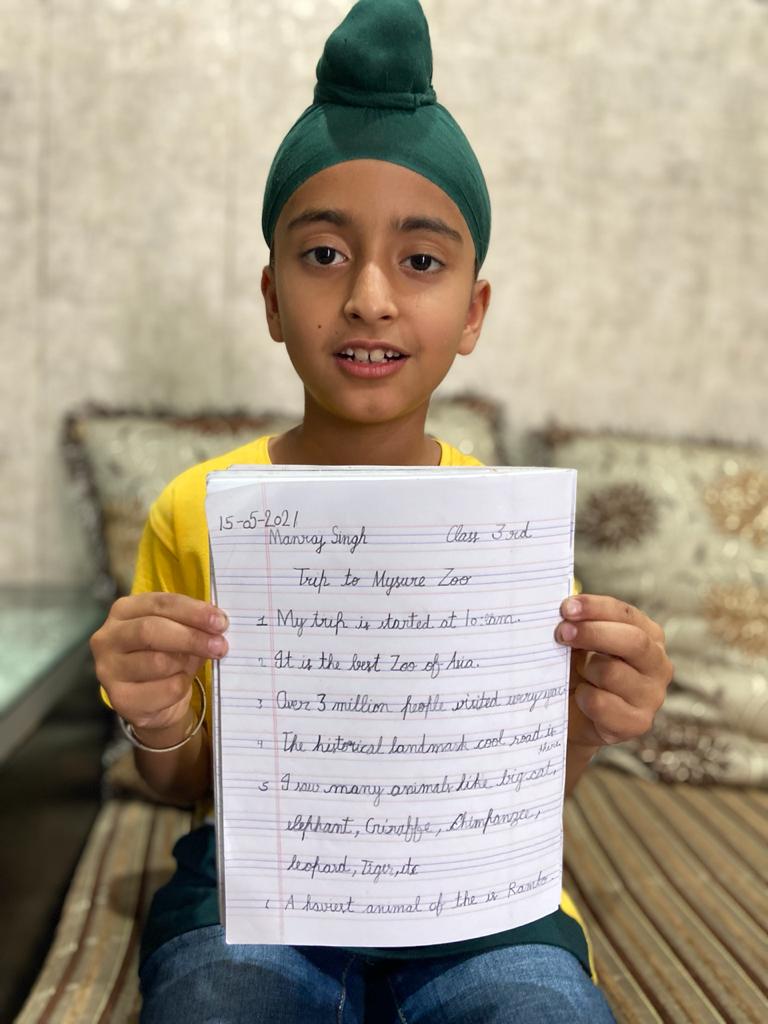 15-05-2021
Manraj Singh Class 3rd
Trip to Mysure Zoo
1 My trip is started at 10:
2 It is the best Zoo of Asia.
3 Over 3 million people visited
4 The historical landmark cool road is
there.
5 I saw many animals like big cat,
elephant, Griraffe, Chimpanzee,
leopard, Tiger, etc
6 A haviest animal of the is Rambo.